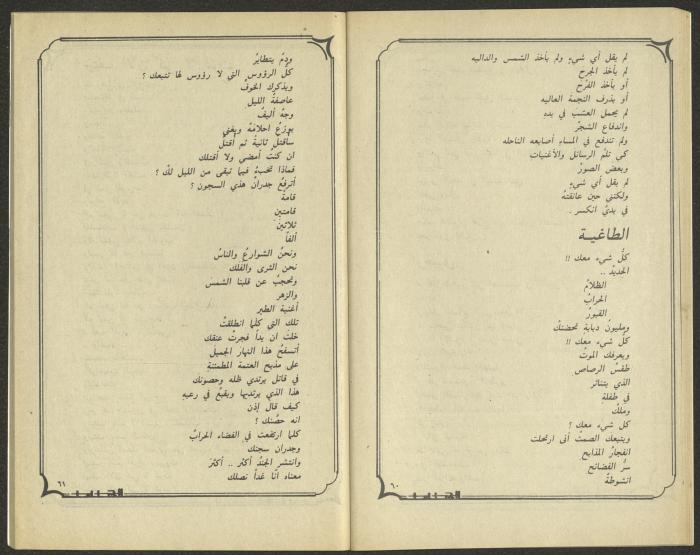 لم يقل أي شيءٍ ولم يأخذ الشمس والداليه
لم يأخذ الجرح
أو يأخذ الفَرْح
أو يذرف النجمة العاليه
لم يحمل العشب في يده
واندفاع الشجَرْ
ولم تندفع في المساء أصابعه الناحله
كي تلمَّ الرسائل والأغنيات
وبعض الصورْ
لم يقل أي شيءٍ
ولكنني حين عانقتهُ
في يديَّ انكسر .
الطاغية
كلُّ شيء معك !!
الحديدْ ..
الظلامُ
الخرابُ
القبورُ
ومليون دبابة تحضنكْ
كل شيء معك !!
ويعرفك الموتُ
طقسُ الرصاص
الذي يتناثر
في طفلة
وملكْ
كل شيء معك ؟
ويتبعك الصمتُ أنى ارتحلت
انفجارُ المذابح
سرُّ الفضائح
انشوطةٌ
٦٠
ودمٌ يتطايرُ
كلُّ الرؤوس التي لا رؤوس لها تتبعك ؟
ويذكرك الخوفُ
عاصفةُ الليل
وجهٌ أليفٌ
يوزعُ احلامهُ ويغني
سأقتلُ ثانيةً ثم أقتلُ
ان كنتُ أمضي ولا أقتلك
فماذا تخبىءُ فيما تبقى من الليل لكْ ؟
أترفعُ جدرانَ هذي السجون ؟
قامةً
قامتينِ
ثلاثينَ
ألفاً
ونحنُ الشوارعُ والناسُ
نحن الثرى والفلك
وتحجبُ عن قلبنا الشمسَ
والزهر
أغنية الطير
تلك التي كلما انطلقتْ
خلتَ ان يداً فجرتْ عنقك
أتسفحُ هذا النهار الجميل
على مذبح العتمة المطمئنةِ
في قاتل يرتدي ظله وحصونك
هذا الذي يرتديها ويقبعُ في رعبهِ
كيف قال إذن
انه حصَّنك ؟
كلما ارتفعت في الفضاء الخرابُ
وجدران سجنك
وانتشر الجندُ أكثرَ .. أكثرَ
معناه أنّا غداً نصلك
٦١